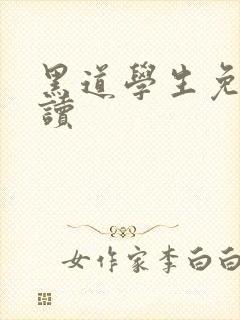 黑道學生免
讀
女作家李白白